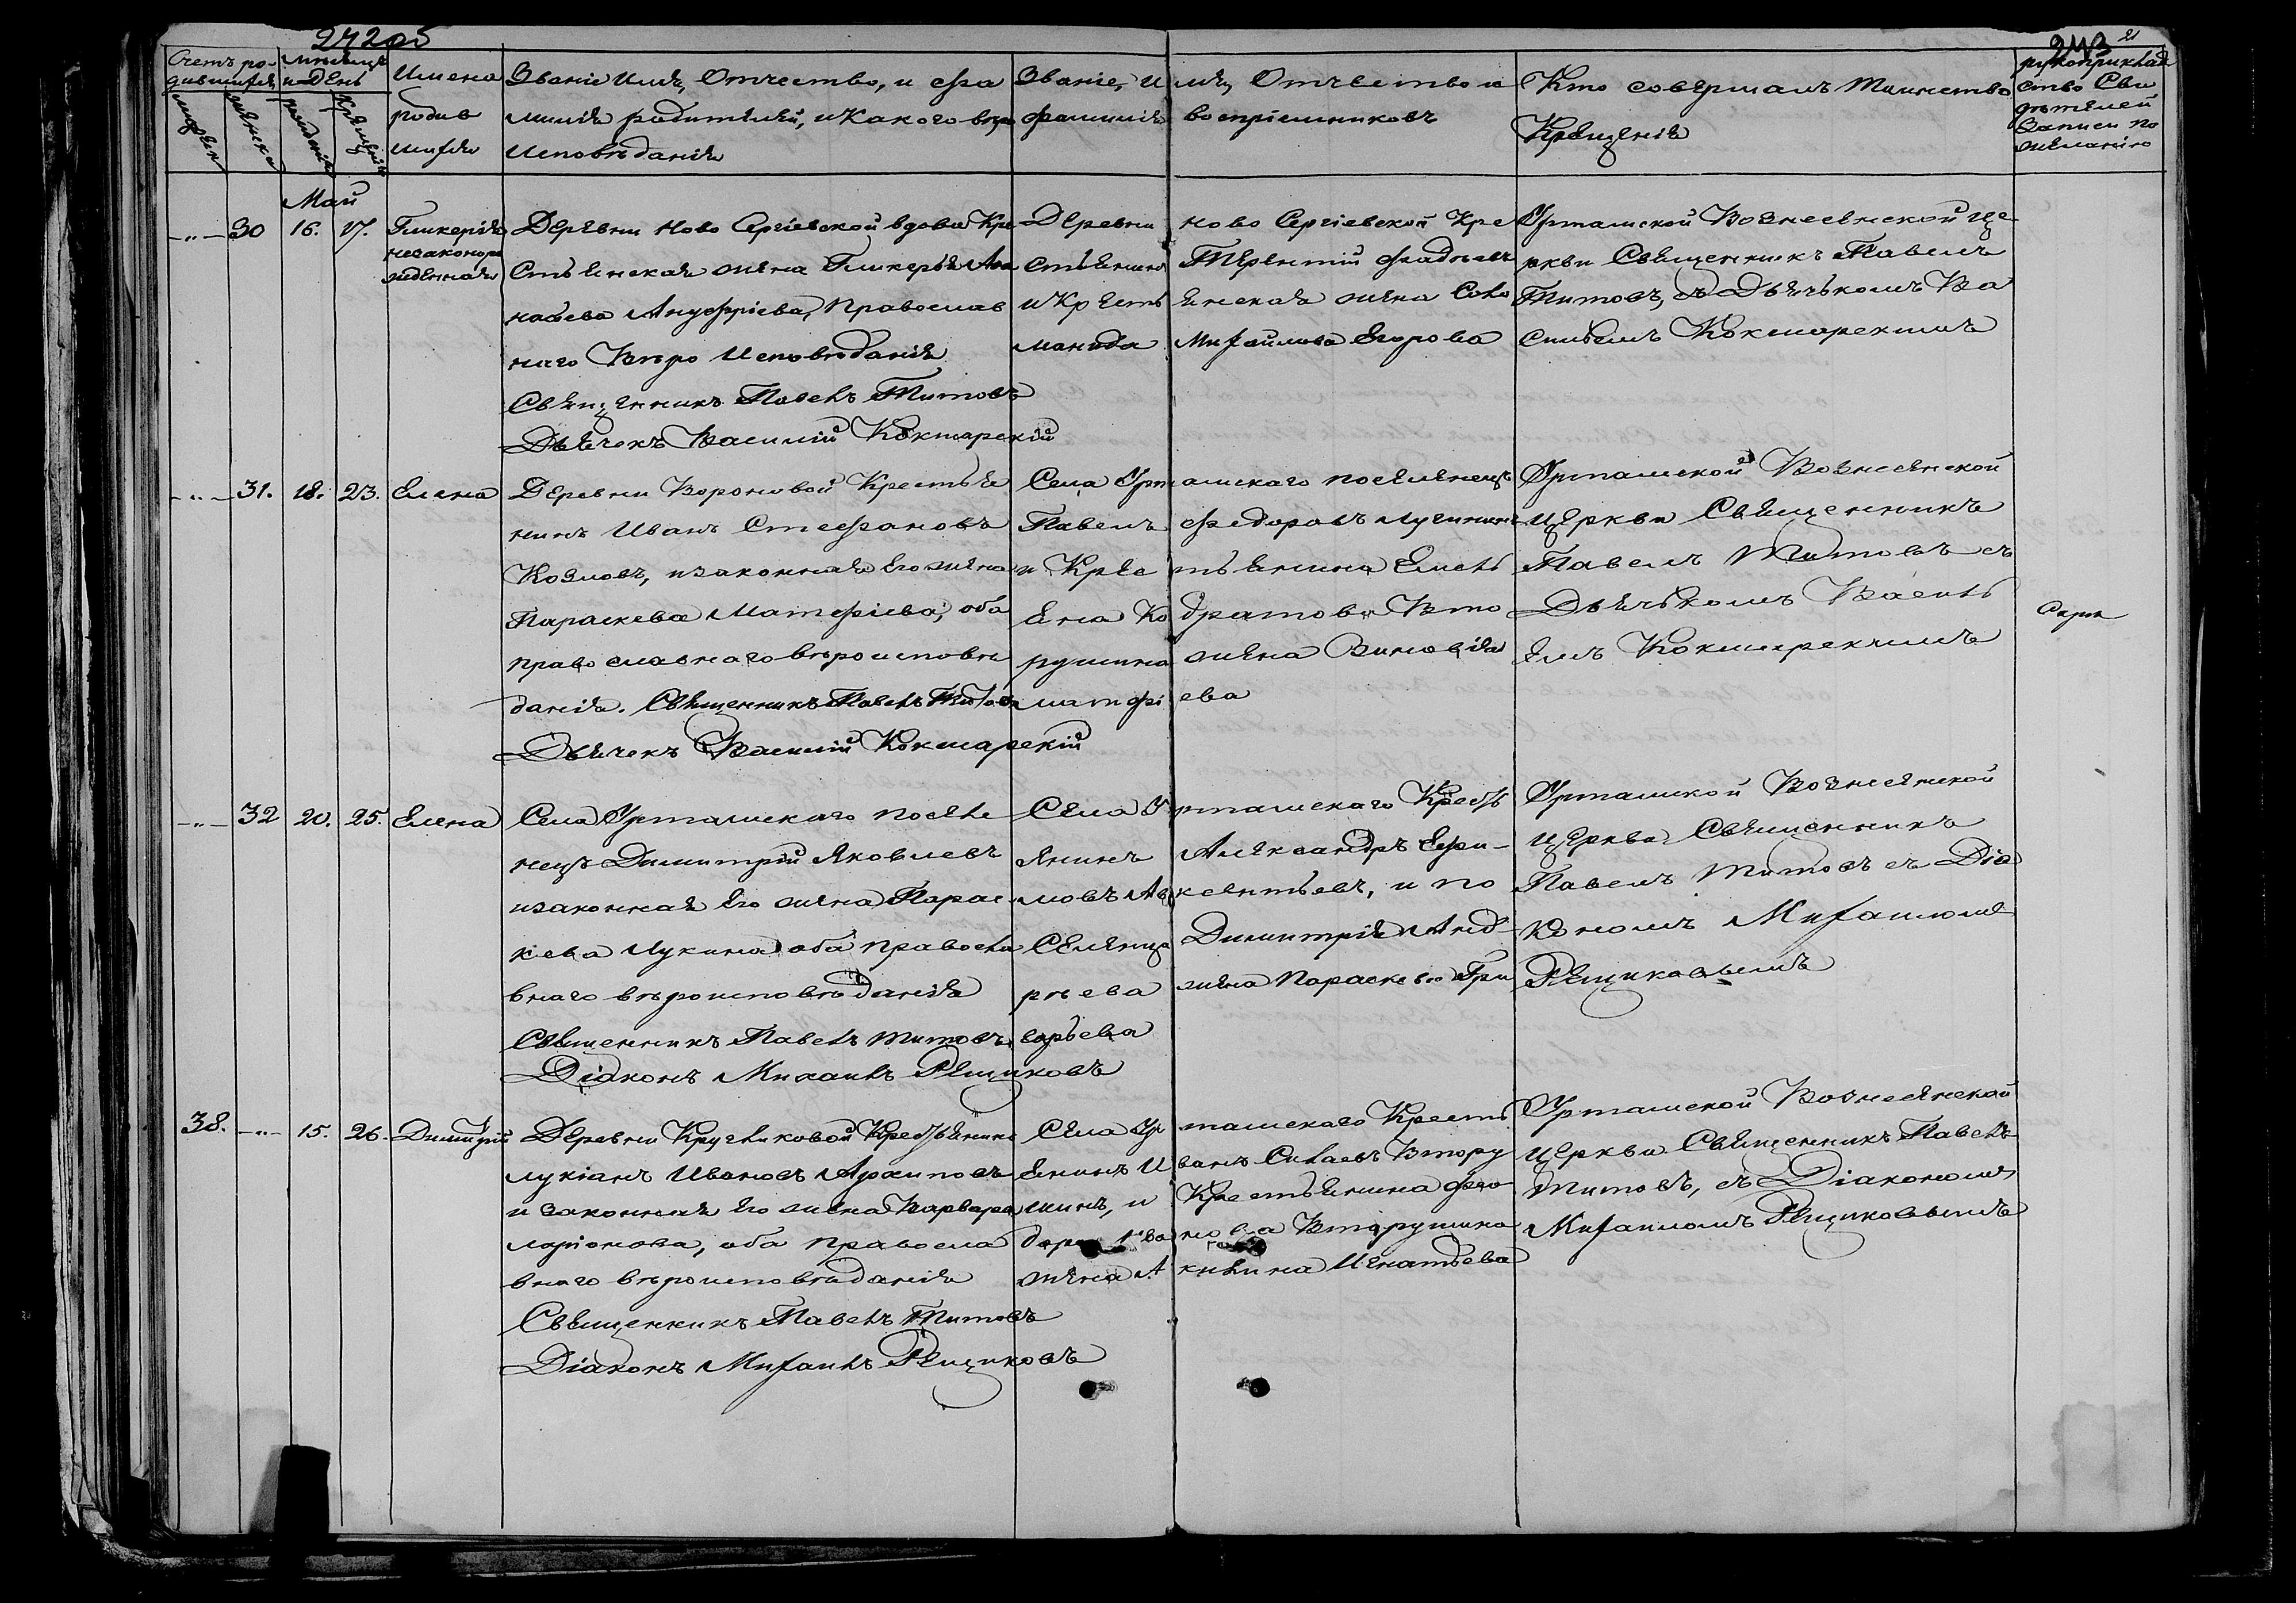 242об
243
Счетъ ро-
дившихся
мѣсяцъ
и День
Имена
родив
шихся
мужеска
женска
рожденія
Крещенія
Званіе Имя, Отчество, и фа
милія родителей, и Какого вѣро
Исповѣданія
Званіе, Имя, Отчѣство и
фамилія воспріемниковъ
Кто совершалъ Таинство
Крещенія
рукоприклад
ство Сви
дѣтелей
Записи по
желанію
Май
30 16. 17. Гликерія
незаконоро
жденная
Деревни Ново Сергіевской вдова Кре
стьянская жена Гликерья Аѳа
насьева Ануфріева, Православ
наго Вѣро Исповѣданія
Священникъ Павелъ Титовъ
Дьячекъ Василій Кокшарскій
Деревни Ново Сергіевской Кре
стьянинъ Терентій Фадѣевъ
и Крестьянская жена Соло
манида Михайлова Егорова
Урташской Вознесенской Це
ркви Священникъ Павелъ
Титовъ, съ Дьячькомъ Ва
сильемъ Кокшарскимъ
31. 18. 23. Елена
Деревни Вороновой Крестья
нинъ Иванъ Стефановъ
Козловъ, изаконная Его жена
Параскева Матфіева, оба
православнаго вѣроисповѣ
данія. Священникъ Павелъ Титовъ
Дьячекъ Василій Кокшарскій
Села Урташскаго поселенецъ
Павелъ Федоровъ Лучининъ
и Крестьянина Емель
яна Кодратова Вто
рушина жена Зиновія
матфіева
Урташской Вознесенской
Церкви Священникъ
Павелъ Титовъ съ
Дьячькомъ Василь
емъ Кокшарскимъ
32 20. 25. Елена
Села Урташскаго поселе
нецъ Димитрій Яковлевъ
изаконная Его жена Парас
кева Лукина оба правосла
внаго вѣроисповѣданія
Священникъ Павелъ Титовъ
Діаконъ Михаилъ Рещиковъ
Села Урташскаго Кресть
янинъ Александръ Ефи-
мовъ Авксентьевъ, и по
селенца Димитрія Анд
рѣева жена Параскева Гри
горьева
Урташской Вознесенской
Церкви Священникъ
Павелъ Титовъ съ Діа
кономъ Михаиломъ
Рещиковымъ
38. 15. 26. Димитрій
Деревни Кругликовой Крестьянинъ
Лукіанъ Ивановъ Архиповъ
и законная Его жена Варвара
Ларіонова, оба правосла
внаго вѣроисповѣданія
Священникъ Павелъ Титовъ
Діаконъ Михаилъ Рещиковъ
Села Урташскаго Кресть
янинъ Иванъ Силаевъ Втору
шинъ, и Крестьянина Фео
Вторушина
жена Акилина Игнатьева
Урташской Вознесенской
Церкви Священникъ Павелъ
Титовъ, съ Діакономъ
Михаиломъ Рещиковымъ